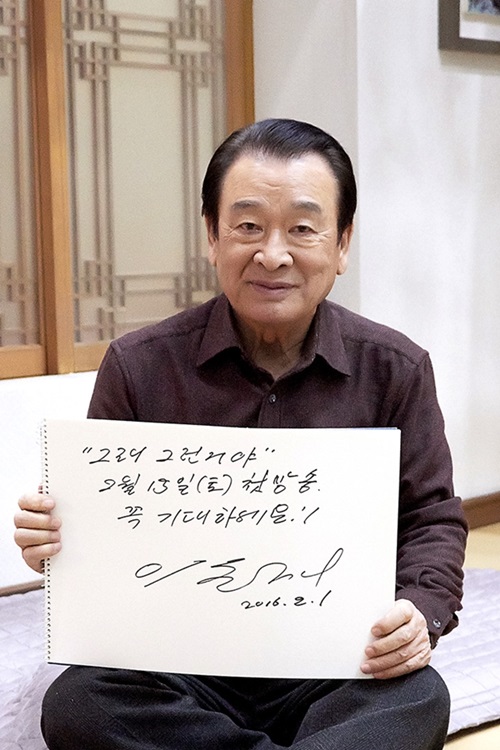 "그래 그런거야"
2월 13일(토) 첫방송.
꼭 기대하세요!!
이순재
2016.2.1